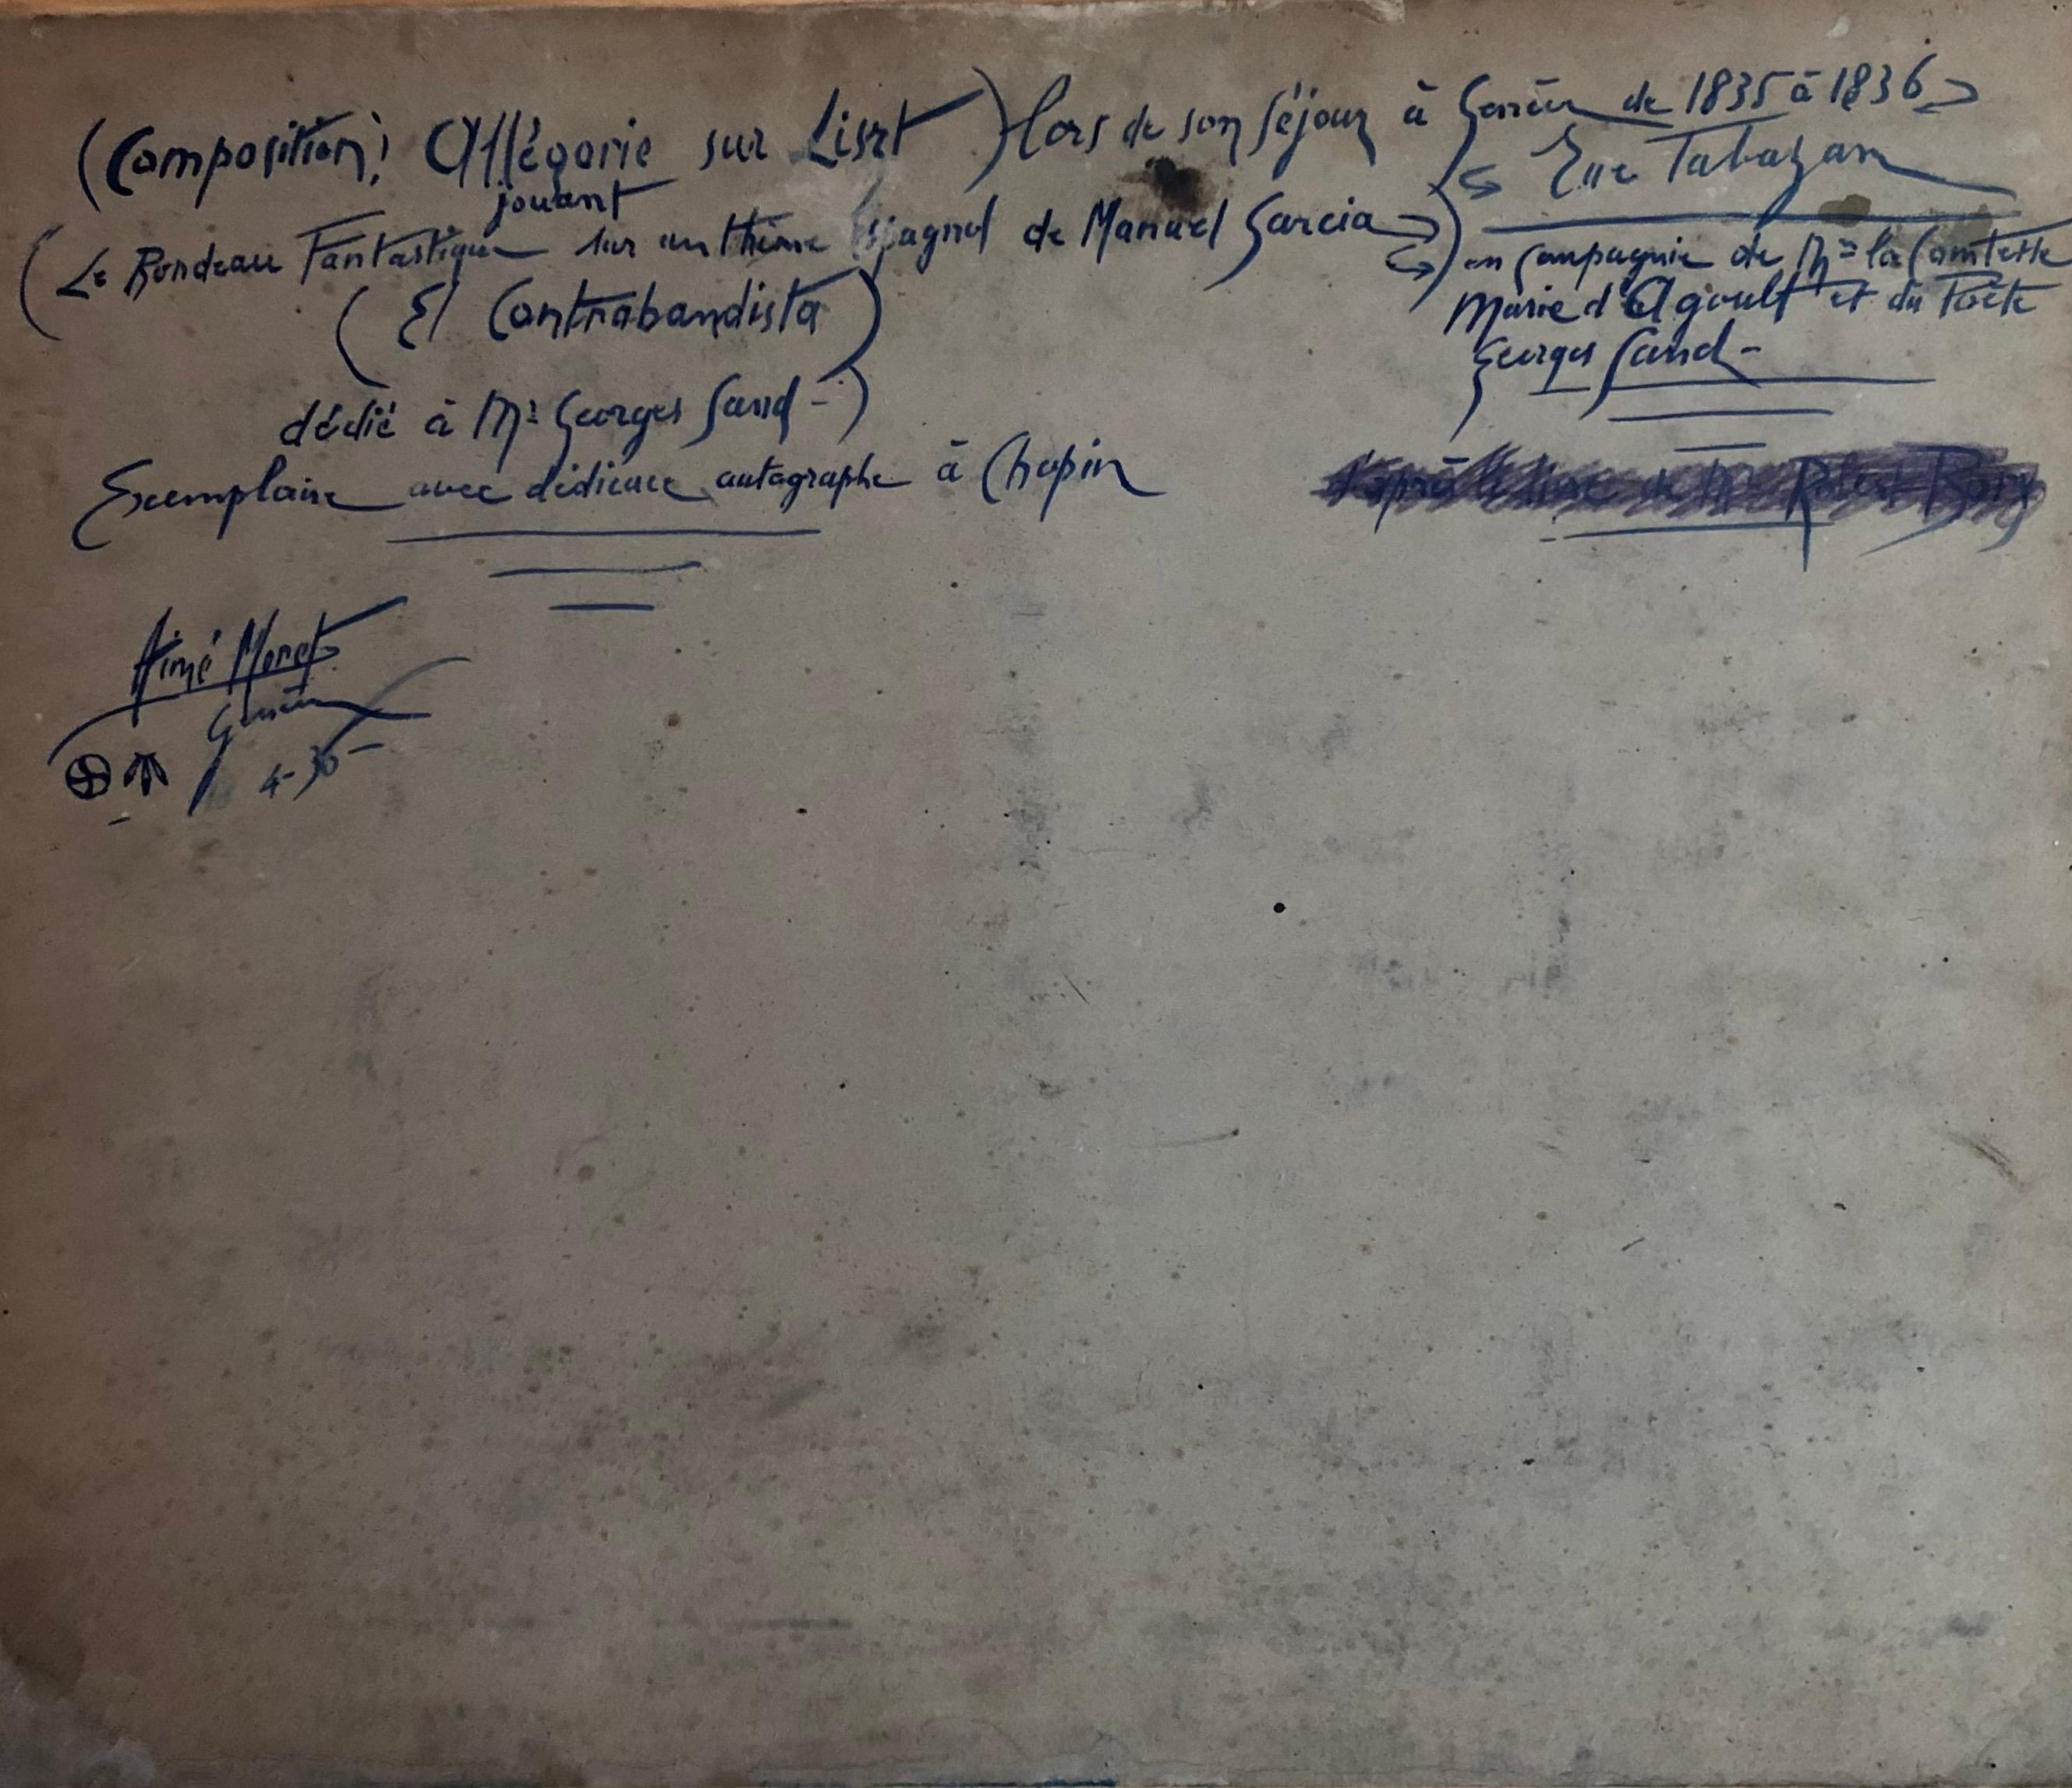 (Composition; Allégorie sur Liszt) lors de son séjour à Genève de 1835 à 1836
jouant
Rue Tabazan
(Le Rondeau Fantastique sur un thème Espagnol de Manuel Garcia)
(El Contrabandista)
dédié à Mme Georges Sand -)
Exemplaire avec dédicace autographe à Chopin
en Compagnie de Mme la Comtesse
Marie d'Agoult et du Poète
Georges Sand -
d'après le livre de Mr Robert Bory
Aimé Moret
Genève